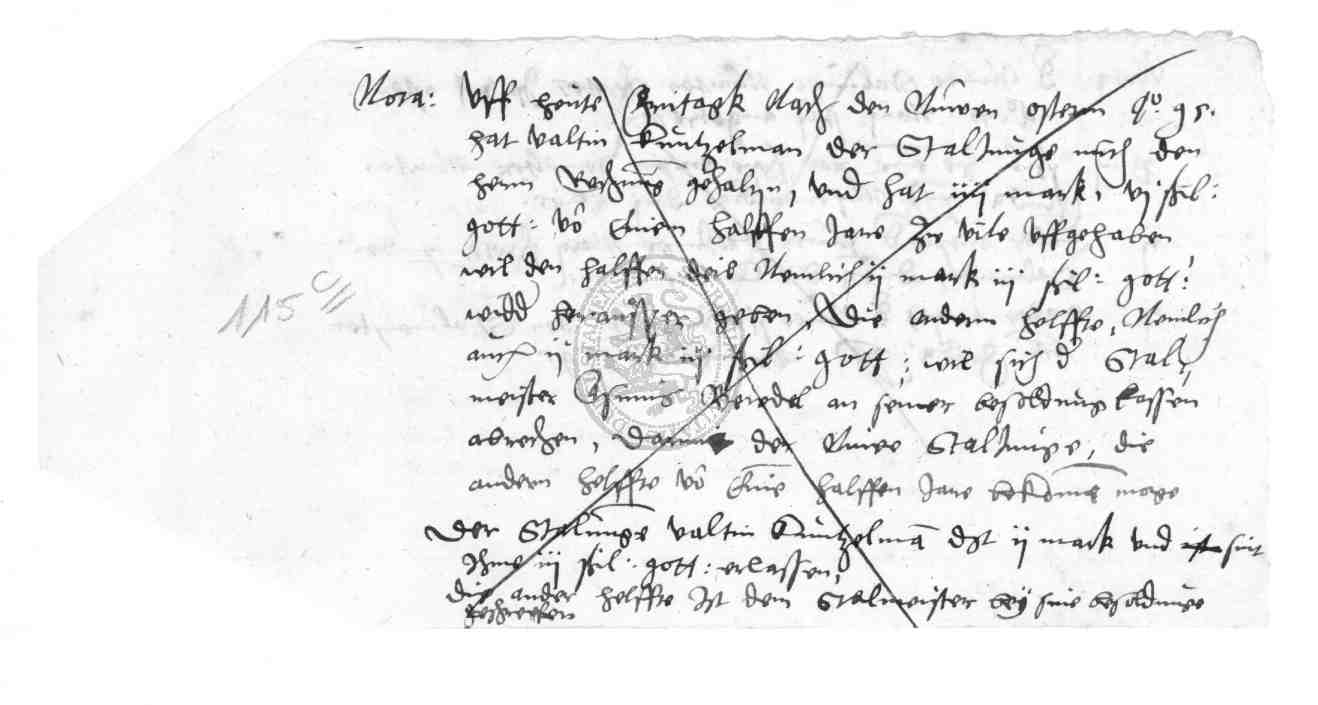 Nota: Uff heute Freitagk Nach den Nuwen ostern Ao 95.
hat valtin Kuntzelman der StalJunge mith den
hern Rechnung gehaltin, und hat iiij mark, vj schil:
gott: vo Einem halffen Jare zu vile uffgehaben
wil den halffen deil Nemlich ij mark iij schil: gott:
widder herausser geben, Die andern helffte, Nemlich
auch ij mark iij schil: gott: wil sich d Stal,
meister Asmus Rewdel an seiner besoldung lassen
abrechen, der Nuwe StalJunge, die
andern helffte vo Eine halffen Jare bekome moge
Der StalJunge valtin Kuntzelma ij mark und sint
Ihme iij schil: gott: erlassen,
Die ander helffte Ist dem Stalmeister bey sine besoldunge
115